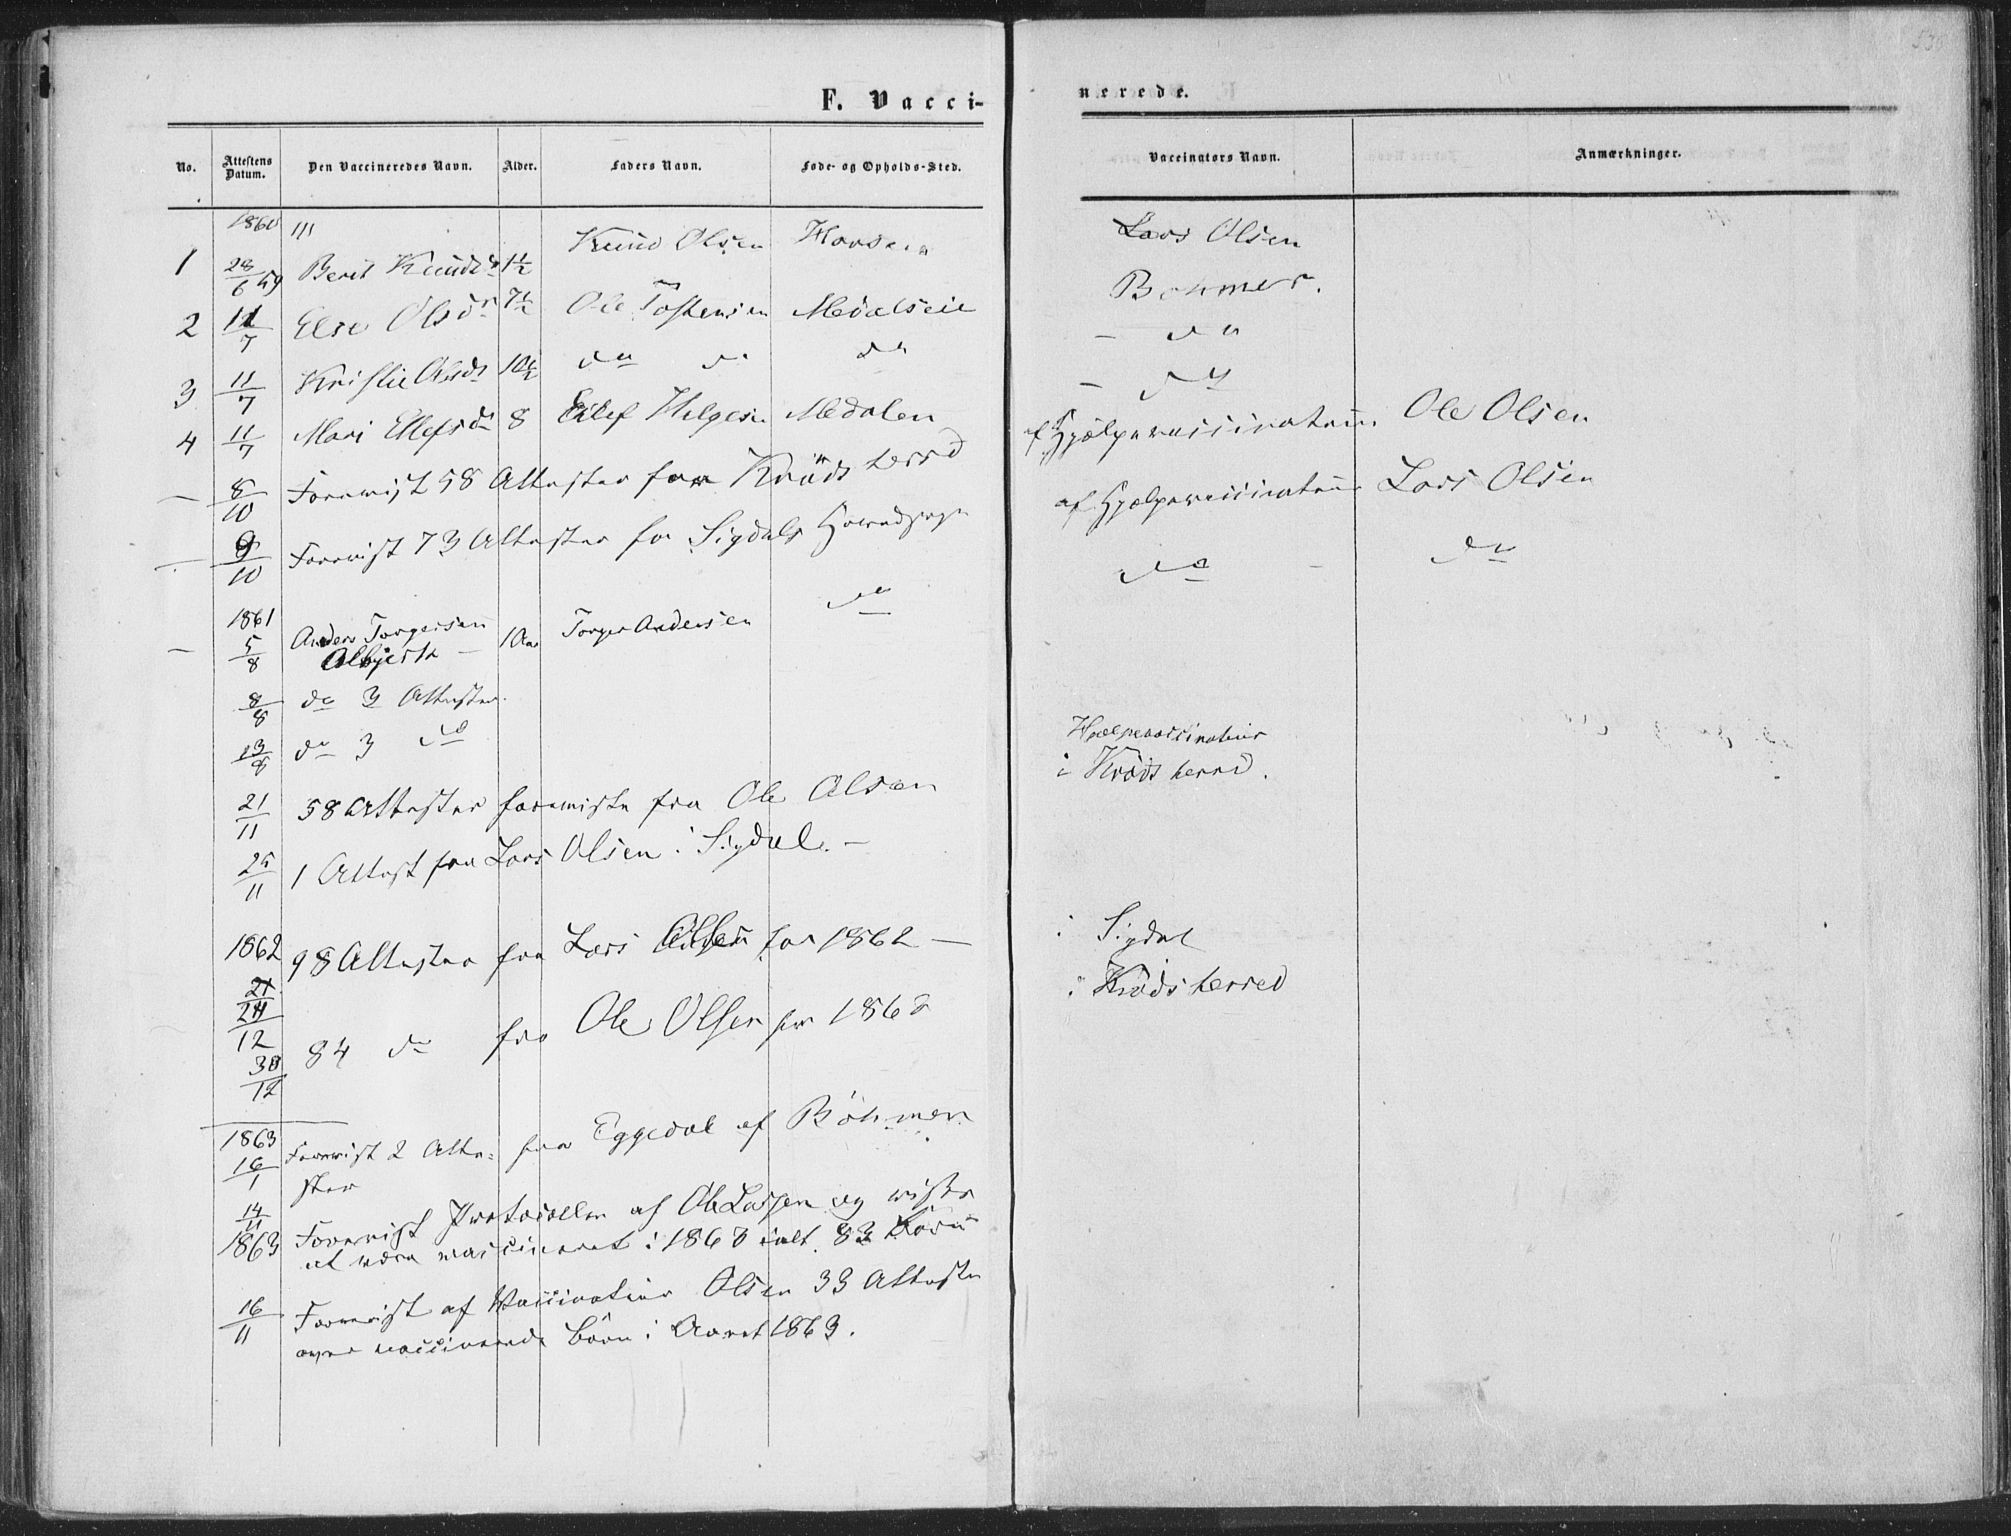 F. Vacci-
nerede.
No. Attestens Datum. Den Vaccineredes Navn. Alder. Faders Navn. Føde- og Opholds-Sted.
Vaccinators Navn. Anmærkninger.
1860
1 28/6 59 Berit Knudsd 1½ Knud Olsen Lars Olsen
2 11/7 Else Olsdr 7½ Ole Tostensen Medalseie Bøhmer.
3 11/7 Kristie Olsdr 10½ do do do - do
4 11/7 Mari Ellefsdr 8 Eilef Helgesen Medalen - do
- 8/10 Forevist 58 Attester fra Krøds herred af Hjælpevaccinateur Ole Olsen
- 9/10 Forevist 73 Attester for Sigdals Hovedsogn af Hjælpevaccinateur Lars Olsen
1861
- 5/8 Anders Torgersen 1 Aar Torger Andersen do do do
8/8 do 3 Attester.
13/8 do 3 do
21/11 58 Attester foreviste fra Ole Olsen Hjælpevaccinateur
i Krødsherred.
25/11 1 Attest fra Lars Olsen i Sigdal. -
1862 98 Attester fra Lars Olsen for 1862 - i Sigdal
24/12
30/12 84 do fra Ole Olsen for 1862 i Krødsherred
1863
16/1 Forevist 2 Atte- fra Eggedal af Böhmer
ster
14/11 1863 Forevist Protocollen af Ole Larsen og
at være vaccineret i 1863 ialt 83 Børn
16/11 Forevist af Vaccinateur Olsen 33 Attester
over vaccinerede Børn i Aaret 1863.